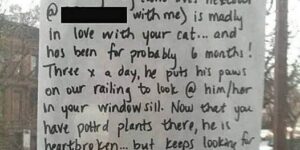 @ with me) is madly
in love with your cat... and
has been for probably 6 months!
Three x a day, he puts his paws
on our railing to look @ him/her
in your windowsill. Now that you
have pottrd plants there, he is
heartbroken... but keeps looking for